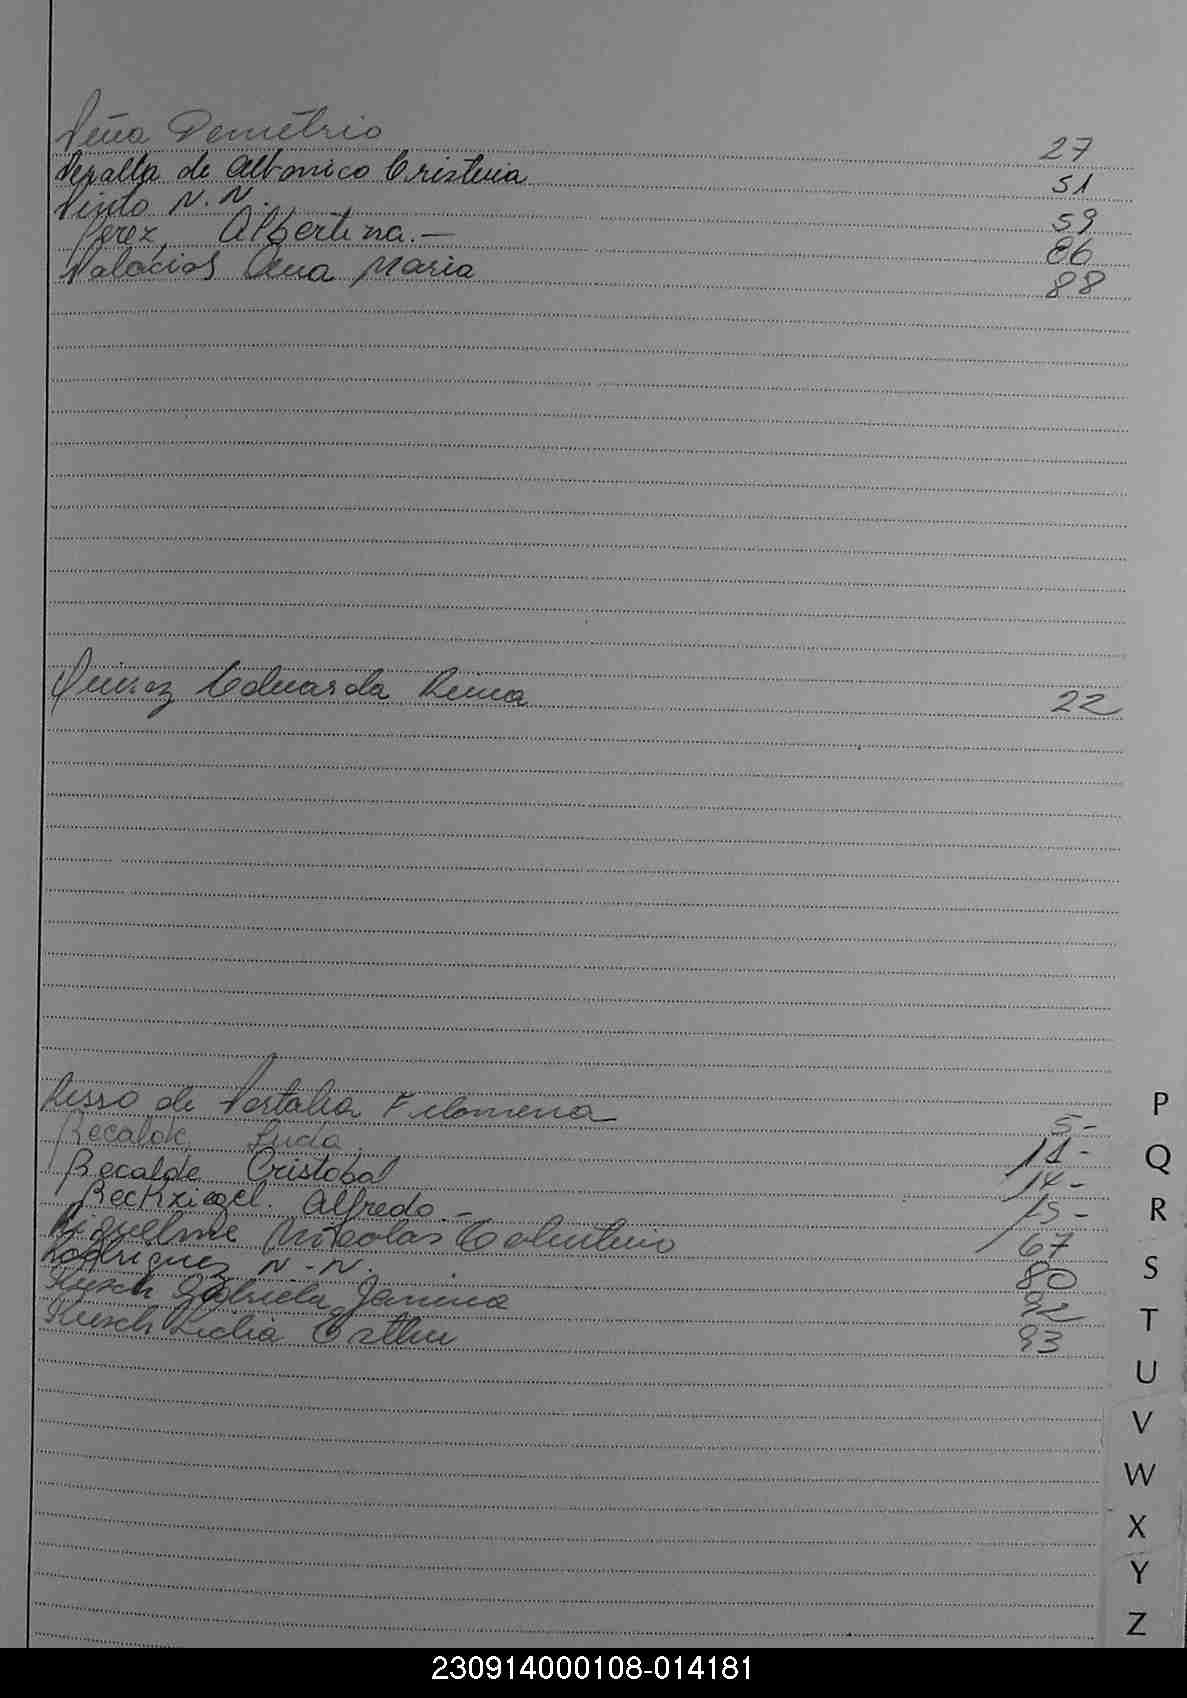 Peña Demétrio 27
Peralta de Albonico Cristina 51
Pinto N.N. 59
Perez, Albertina.— 86
Palacios Ana Maria 88
Quiroz Eduarda 22
Risso de Filomena 5-
Recalde 11-
Recalde Cristobal 14-
Reckziegel. Alfredo.- 15-
Riquelme Nicolas 67
Rodriguez N-N. 80
Rusch Gabriela Janina 92
Rusch Lidia Esther 93
P
Q
R
S
T
U
V
W
X
Y
Z
230914000108-014181